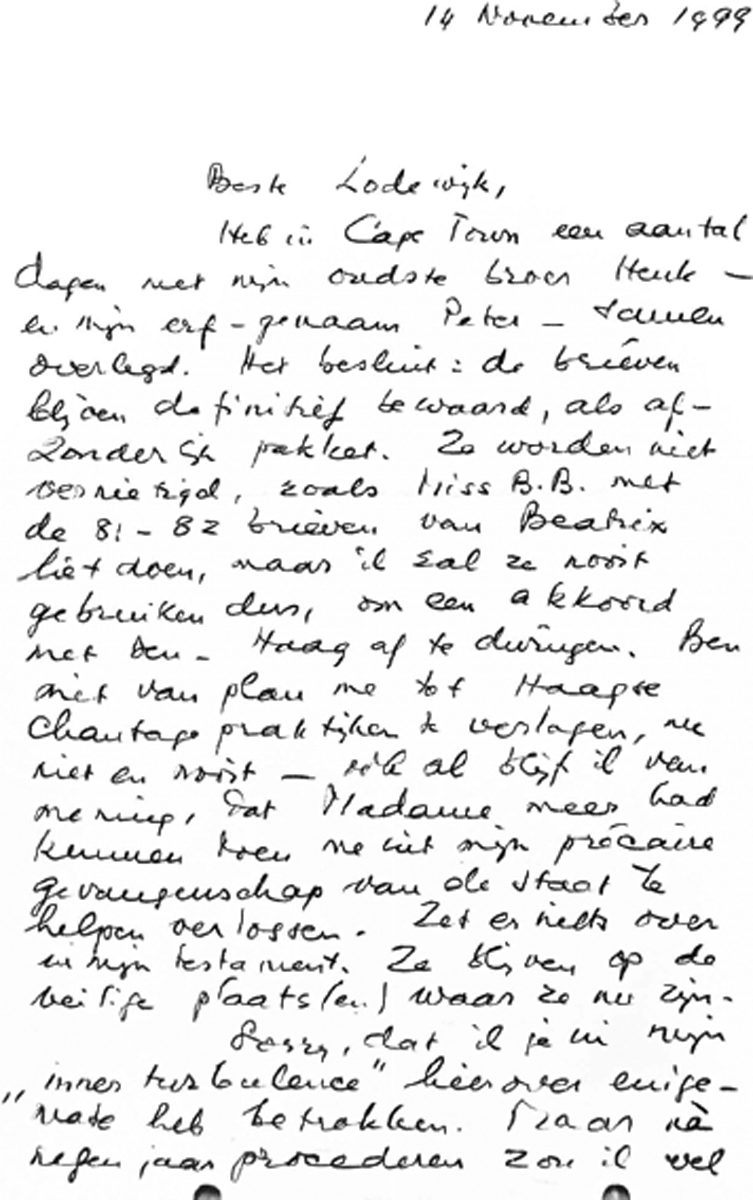 14 November 1999
Beste Lodewijk,
Heb in Cape Town een aantal
dagen met mijn oudste broer Henk –
en mijn erf-genaam Peter – samen
overlegd. Het besluit: de brieven
blijven definitief bewaard, als af-
zonderlijk pakket. Ze worden niet
vernietigd, zoals Miss B.B. met
de 81-82 brieven van Beatrix
liet doen, maar ik zal ze nooit
gebruiken dus, om een akkoord
met Den-Haag af te dwingen. Ben
niet van plan me tot Haagse
chantage praktijken te verlagen, nu
niet en nooit – óók al blijf ik van
mening, dat Madame meer had
kunnen doen me uit mijn précaire
gevangenschap van de staat te
helpen verlossen. Zet er niets over
in mijn testament. Ze blijven op de
veilige plaats(en) waar ze nu zijn.
Sorry, dat ik je in mijn
„inner turbulence" hierover enige-
mate heb betrokken. Maar ná
negen jaar procederen zou ik wel